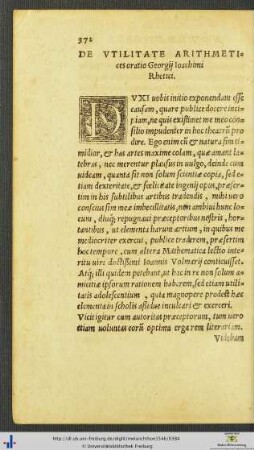 372
DE VTILITATE ARITHMETI-
ces oratio Georgij Ioachimi
Rhetici.
DVXI uobis initio exponendam esse
causam, quare publice docere inci-
piam, ne quis existimet me meo con-
silio impudenter in hoc theatrū pro
dire. Ego enim cū & natura sim ti-
midior, & has artes maxime colam, quæ amant la-
tebras, nec merentur plausus in uulgo, deinde cum
uideam, quanta sit non solum scientiæ copia, sed e-
tiam dexteritate, & fœlicitate ingenij opus, præser-
tim in his subtilibus artibus tradendis, mihi uero
conscius sim meæ imbecillitatis, non ambiui hunc lo-
cum, diuq; repugnaui præceptoribus nostris, hor-
tantibus, ut elementa harum artium, in quibus me
mediocriter exercui, publice traderem, præsertim
hoc tempore, cum altera Mathematica lectio interi-
tu uiri doctissimi Ioannis Volmerij conticuisset.
Atq; illi quidem petebant, ut hac in re non solum a-
micitiæ ipsorum rationem haberem, sed etiam utili-
tatis adolescentium, quæ magnopere prodest hæc
elementa in scholis assidue inculcari & exerceri.
Vicit igitur cum autoritas præceptorum, tum uero
etiam uoluntas eorū optima erga rem literariam.
Videbam
http://dl.ub.uni-freiburg.de/diglit/melanchthon1546/0384
© Universitätsbibliothek Freiburg